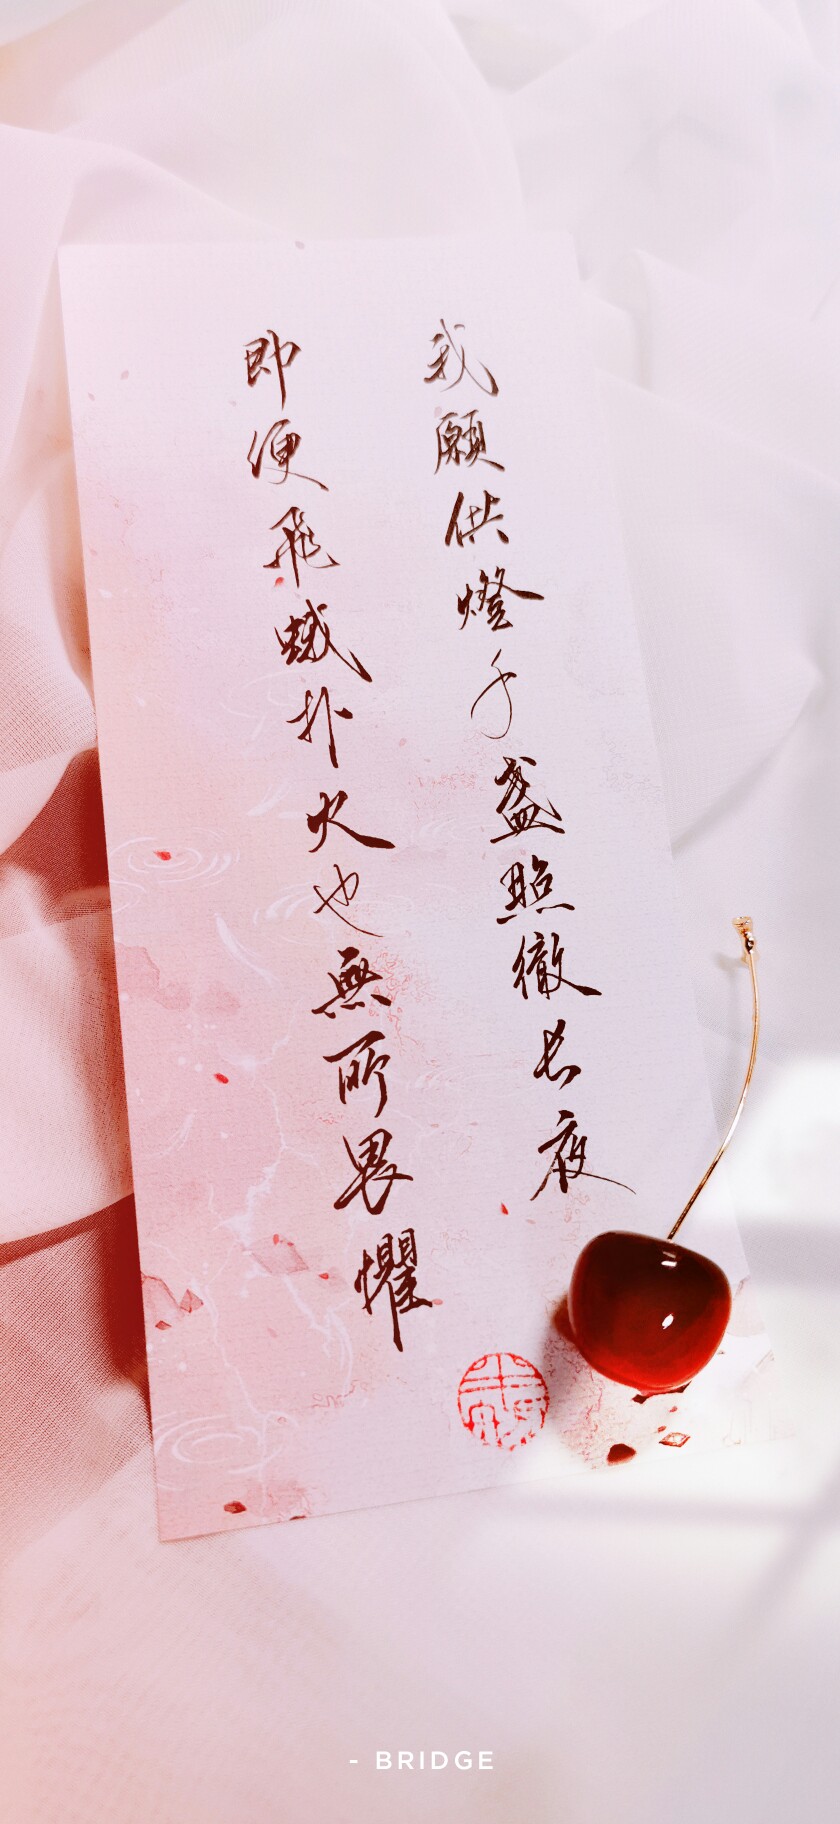 我願供燈千盞照徹長夜
即便飛蛾扑火也無所畏懼
- BRIDGE